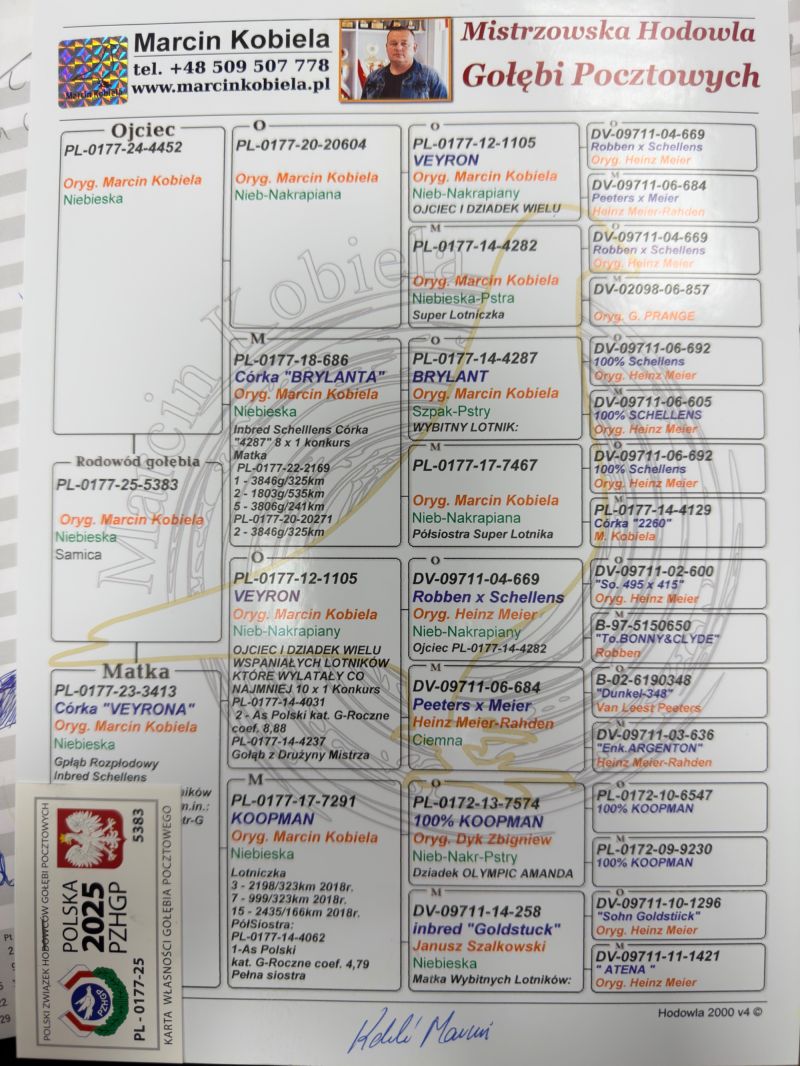 Marcin Kobiela
tel. +48 509 507 778
www.marcinkobiela.pl
Marcin Kobiela
Mistrzowska Hodowla
Gołębi Pocztowych
Ojciec
PL-0177-24-4452
Oryg. Marcin Kobiela
Niebieska
Rodowód gołębia
PL-0177-25-5383
Oryg. Marcin Kobiela
Niebieska
Samica
Matka
PL-0177-23-3413
Córka "VEYRONA"
Oryg. Marcin Kobiela
Niebieska
Gpłąb Rozpłodowy
Inbred Schellens
ników
m.in.:
tr-G
O
PL-0177-20-20604
Oryg. Marcin Kobiela
Nieb-Nakrapiana
M
PL-0177-18-686
Córka "BRYLANTA"
Oryg. Marcin Kobiela
Niebieska
Inbred Schelllens Córka
"4287" 8 x 1 konkurs
Matka
PL-0177-22-2169
1 - 3846g/325km
2 - 1803g/535km
5 - 3806g/241km
PL-0177-20-20271
2 - 3846g/325km
O
PL-0177-12-1105
VEYRON
Oryg. Marcin Kobiela
Nieb-Nakrapiany
OJCIEC I DZIADEK WIELU
WSPANIAŁYCH LOTNIKÓW
KTÓRE WYLATAŁY CO
NAJMNIEJ 10 x 1 Konkurs
PL-0177-14-4031
2 - As Polski kat. G-Roczne
coef. 8,88
PL-0177-14-4237
Gołąb z Drużyny Mistrza
M
PL-0177-17-7291
KOOPMAN
Oryg. Marcin Kobiela
Niebieska
Lotniczka
3 - 2198/323km 2018r.
7 - 999/323km 2018r.
15 - 2435/166km 2018r.
PółSiostra:
PL-0177-14-4062
1-As Polski
kat. G-Roczne coef. 4,79
Pełna siostra
O
PL-0177-12-1105
VEYRON
Oryg. Marcin Kobiela
Nieb-Nakrapiany
OJCIEC I DZIADEK WIELU
M
PL-0177-14-4282
Oryg. Marcin Kobiela
Niebieska-Pstra
Super Lotniczka
O
PL-0177-14-4287
BRYLANT
Oryg. Marcin Kobiela
Szpak-Pstry
WYBITNY LOTNIK:
M
PL-0177-17-7467
Oryg. Marcin Kobiela
Nieb-Nakrapiana
Półsiostra Super Lotnika
O
DV-09711-04-669
Robben x Schellens
Oryg. Heinz Meier
Nieb-Nakrapiany
Ojciec PL-0177-14-4282
M
DV-09711-06-684
Peeters x Meier
Heinz Meier-Rahden
Ciemna
O
PL-0172-13-7574
100% KOOPMAN
Oryg. Dyk Zbigniew
Nieb-Nakr-Pstry
Dziadek OLYMPIC AMANDA
M
DV-09711-14-258
inbred "Goldstuck"
Janusz Szalkowski
Niebieska
Matka Wybitnych Lotników:
O
DV-09711-04-669
Robben x Schellens
Oryg. Heinz Meier
M
DV-09711-06-684
Peeters x Meier
Heinz Meier-Rahden
O
DV-09711-04-669
Robben x Schellens
Oryg. Heinz Meier
M
DV-02098-06-857
Oryg. G. PRANGE
O
DV-09711-06-692
100% Schellens
Oryg. Heinz Meier
M
DV-09711-06-605
100% SCHELLENS
Oryg. Heinz Meier
O
DV-09711-06-692
100% Schellens
Oryg. Heinz Meier
M
PL-0177-14-4129
Córka "2260"
M. Kobiela
O
DV-09711-02-600
"So. 495 x 415"
Oryg. Heinz Meier
M
B-97-5150650
"To.BONNY&CLYDE"
Robben
O
B-02-6190348
"Dunkel-348"
Van Leest Peeters
M
DV-09711-03-636
"Enk.ARGENTON"
Heinz Meier-Rahden
O
PL-0172-10-6547
100% KOOPMAN
M
PL-0172-09-9230
100% KOOPMAN
O
DV-09711-10-1296
"Sohn Goldstiick"
Oryg. Heinz Meier
M
DV-09711-11-1421
" ATENA "
Oryg. Heinz Meier
Marcin Kobiela
Hodowla 2000 v4 ©
POLSKI ZWIĄZEK HODOWCÓW GOŁĘBI POCZTOWYCH
POLSKA
2025
PZHGP
PZHGP
PL - 0177-25
5383
KARTA WŁASNOŚCI GOŁĘBIA POCZTOWEGO